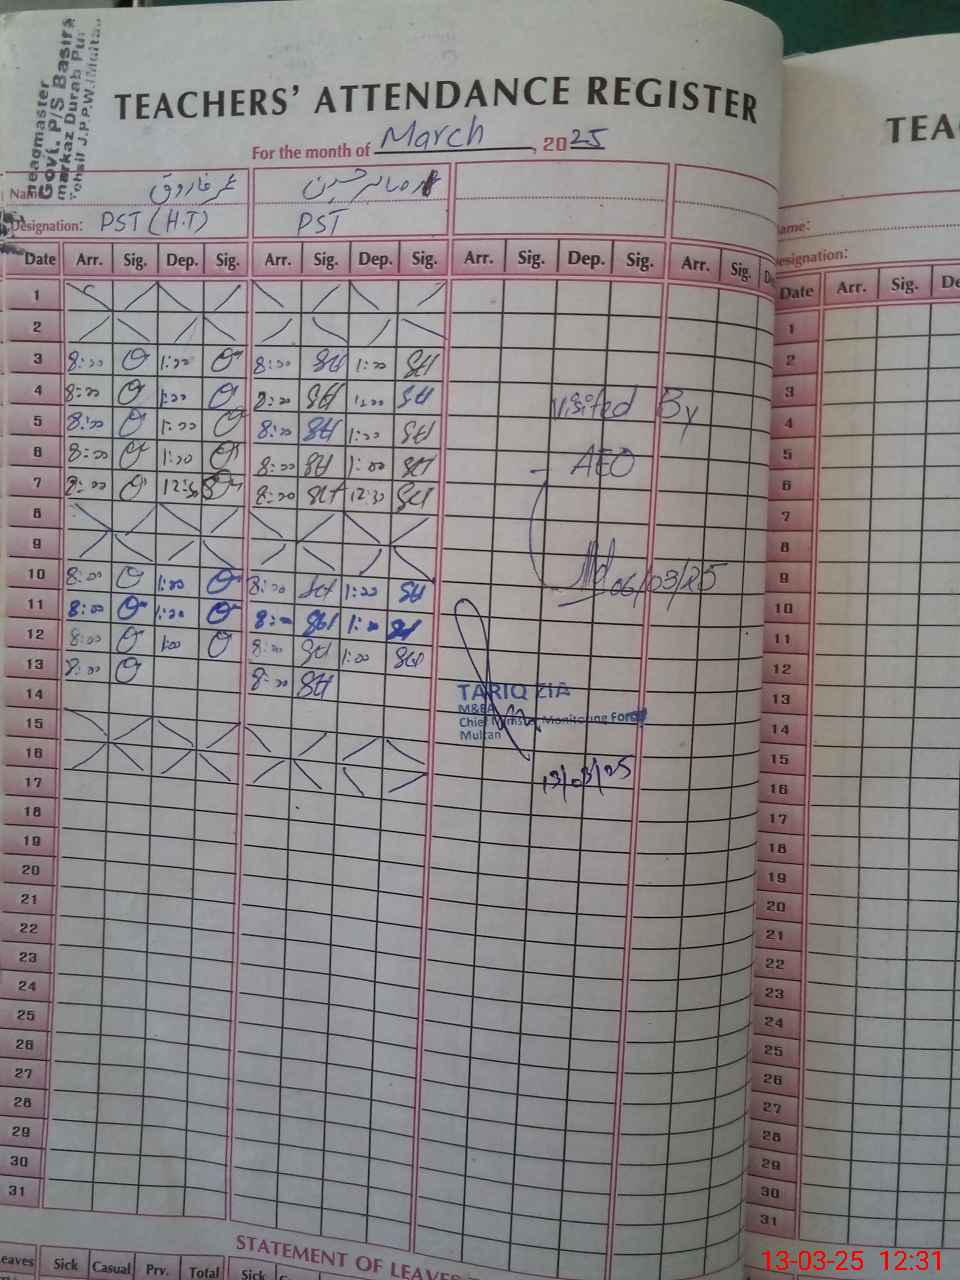 Headmaster
Govt. P/S Basira
markaz Durab Pur
Tehsil J.P.P.W.(Multan
TEACHERS' ATTENDANCE REGISTER
For the month of March, 2025
Name عمر فاروق
Designation: PST (H.T) PST
Date Arr. Sig. Dep. Sig. Arr. Sig. Dep. Sig. Arr. Sig. Dep. Sig. Arr. Sig.
1
2
3 8:00 1:00 8:00 1:00
4 8:00 1:00 8:00 1:00
5 8:00 1:00 8:00 1:00
6 8:00 1:00 8:00 1:00
7 8:00 12:30 8:00 12:30
8
9
10 8:00 1:00 8:00 1:00
11 8:00 1:00 8:00 1:00
12 8:00 1:00 8:00 1:00
13 8:00 8:00
14
15
16
17
18
19
20
21
22
23
24
25
26
27
28
29
30
31
visited By
AEO
06/03/25
TARIQ ZIA
M&EA
Chief Minster Monitoring Force
Multan
13/03/25
STATEMENT OF LEAVES
Leaves Sick Casual Prv. Total Sick
TEA
Name:
Designation:
Date Arr. Sig. De
1
2
3
4
5
6
7
8
9
10
11
12
13
14
15
16
17
18
19
20
21
22
23
24
25
26
27
28
29
30
31
13-03-25 12:31